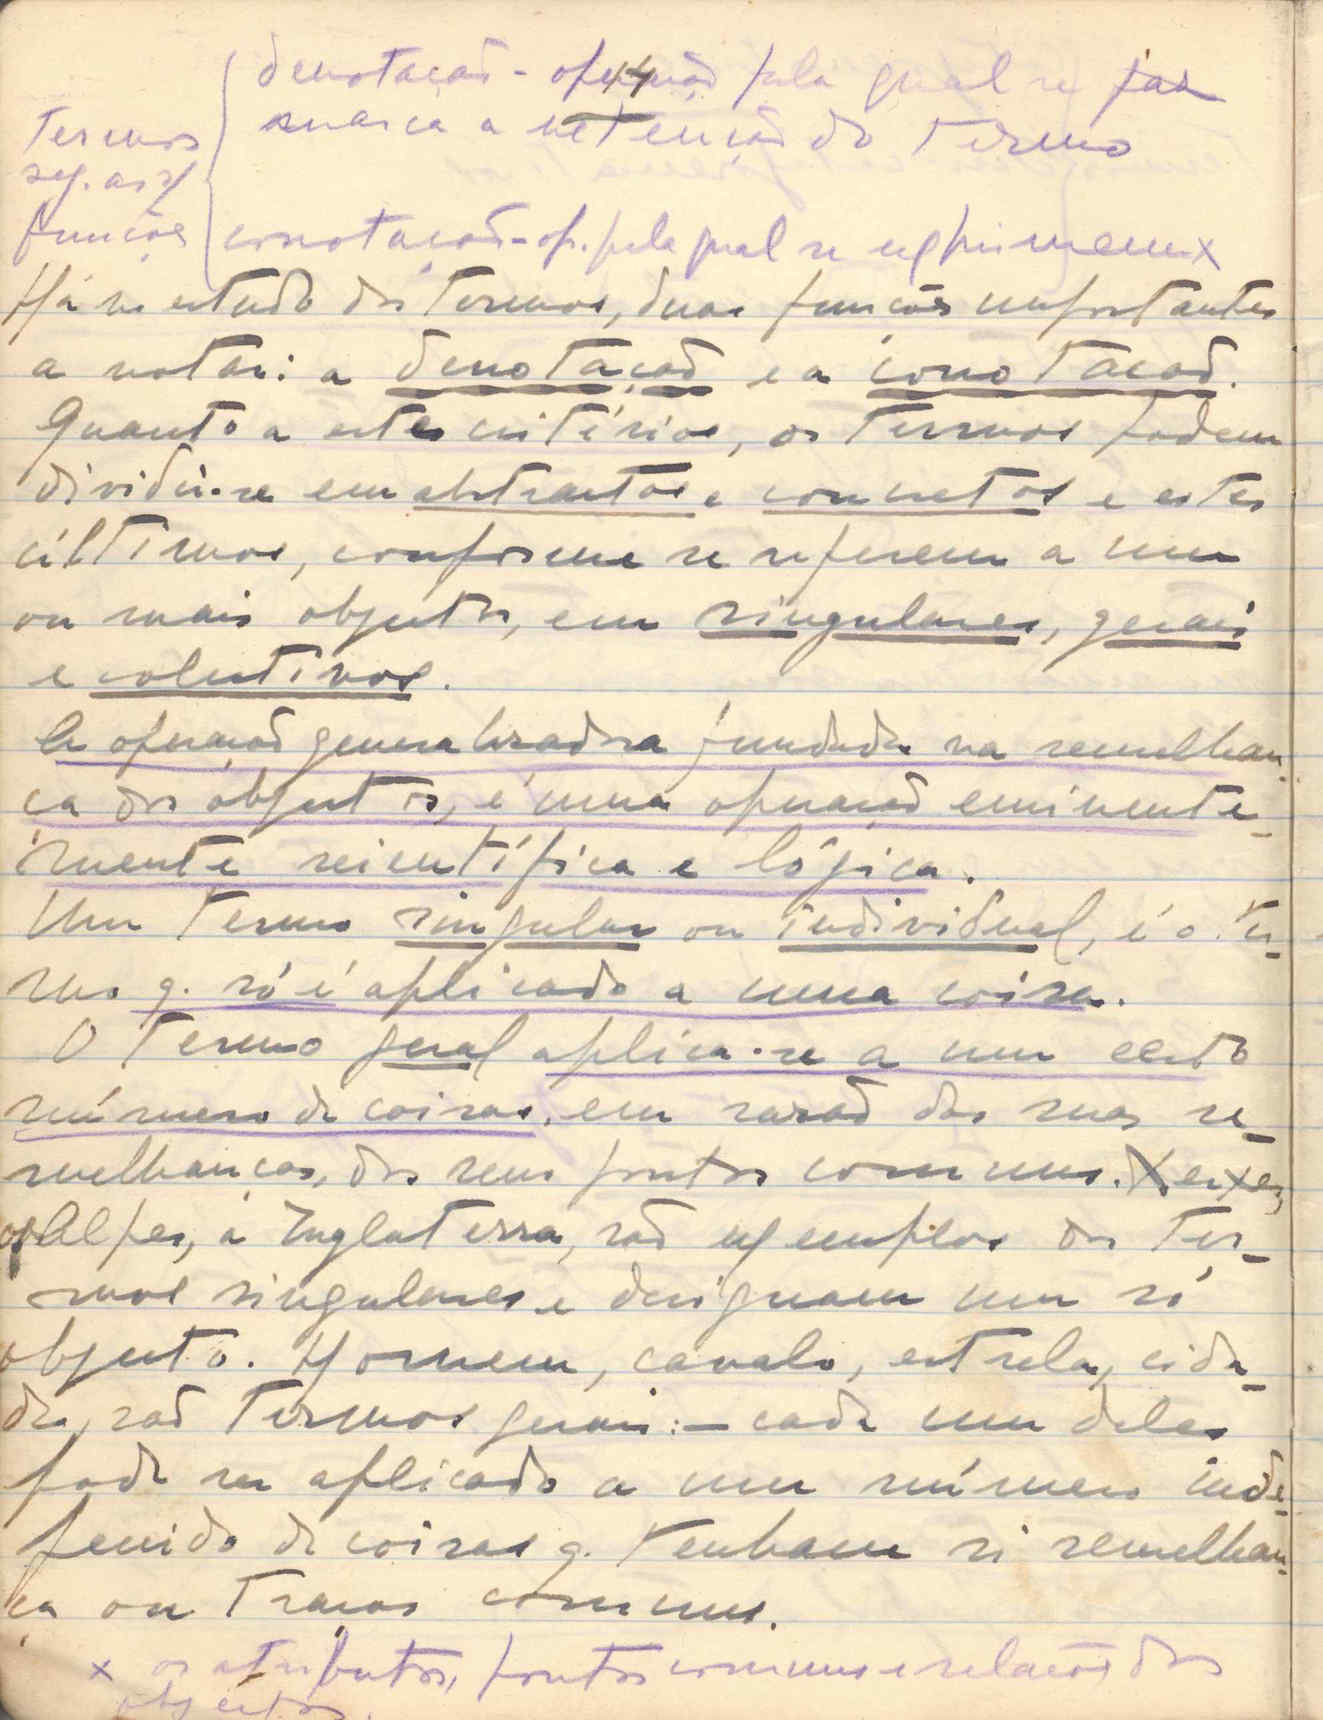 denotação - operação pela qual se faz
44
marca a retenção do termo
Termos
seg. as
funções
conotação - op. pela qual se exprimem x
Há no estudo dos termos, duas funções importantes
a notar: a denotação e a conotação.
Quanto a estes critérios, os termos podem
dividir-se em abstractos e concretos e estes
últimos, conforme se referem a um
ou mais objectos, em singulares, gerais
e colectivos.
A operação generalizadora fundada na semelhan-
ça dos objectos, é uma operação eminente-
mente scientífica e lógica.
Um termo singular ou individual, é o ter-
mo q. só é aplicado a uma coisa.
O termo geral aplica-se a um certo
número de coisas, em razão das suas se-
melhanças, dos seus pontos comuns. Xerxes,
os Alpes, a Inglaterra, são exemplos de ter-
mos singulares e designam um só
objecto. Homem, cavalo, estrela, cida-
de, são termos gerais: - cada um deles
pode ser aplicado a um número inde-
fenido de coisas q. tenham si semelhan-
ça ou traços comuns.
x os atributos, pontos comuns e relações dos
objectos.